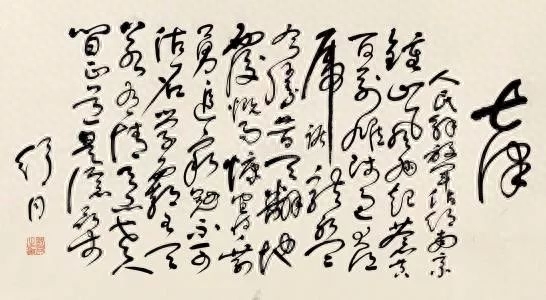 七律
人民解放军占领南京
鍾山风雨起苍黄
百万雄师过大江
虎踞龙盘
今勝昔天翻地
覆慨而慷宜将剩
勇追穷寇不可
沽名学霸王天
若有情天亦老人
间正道是沧桑
舒同